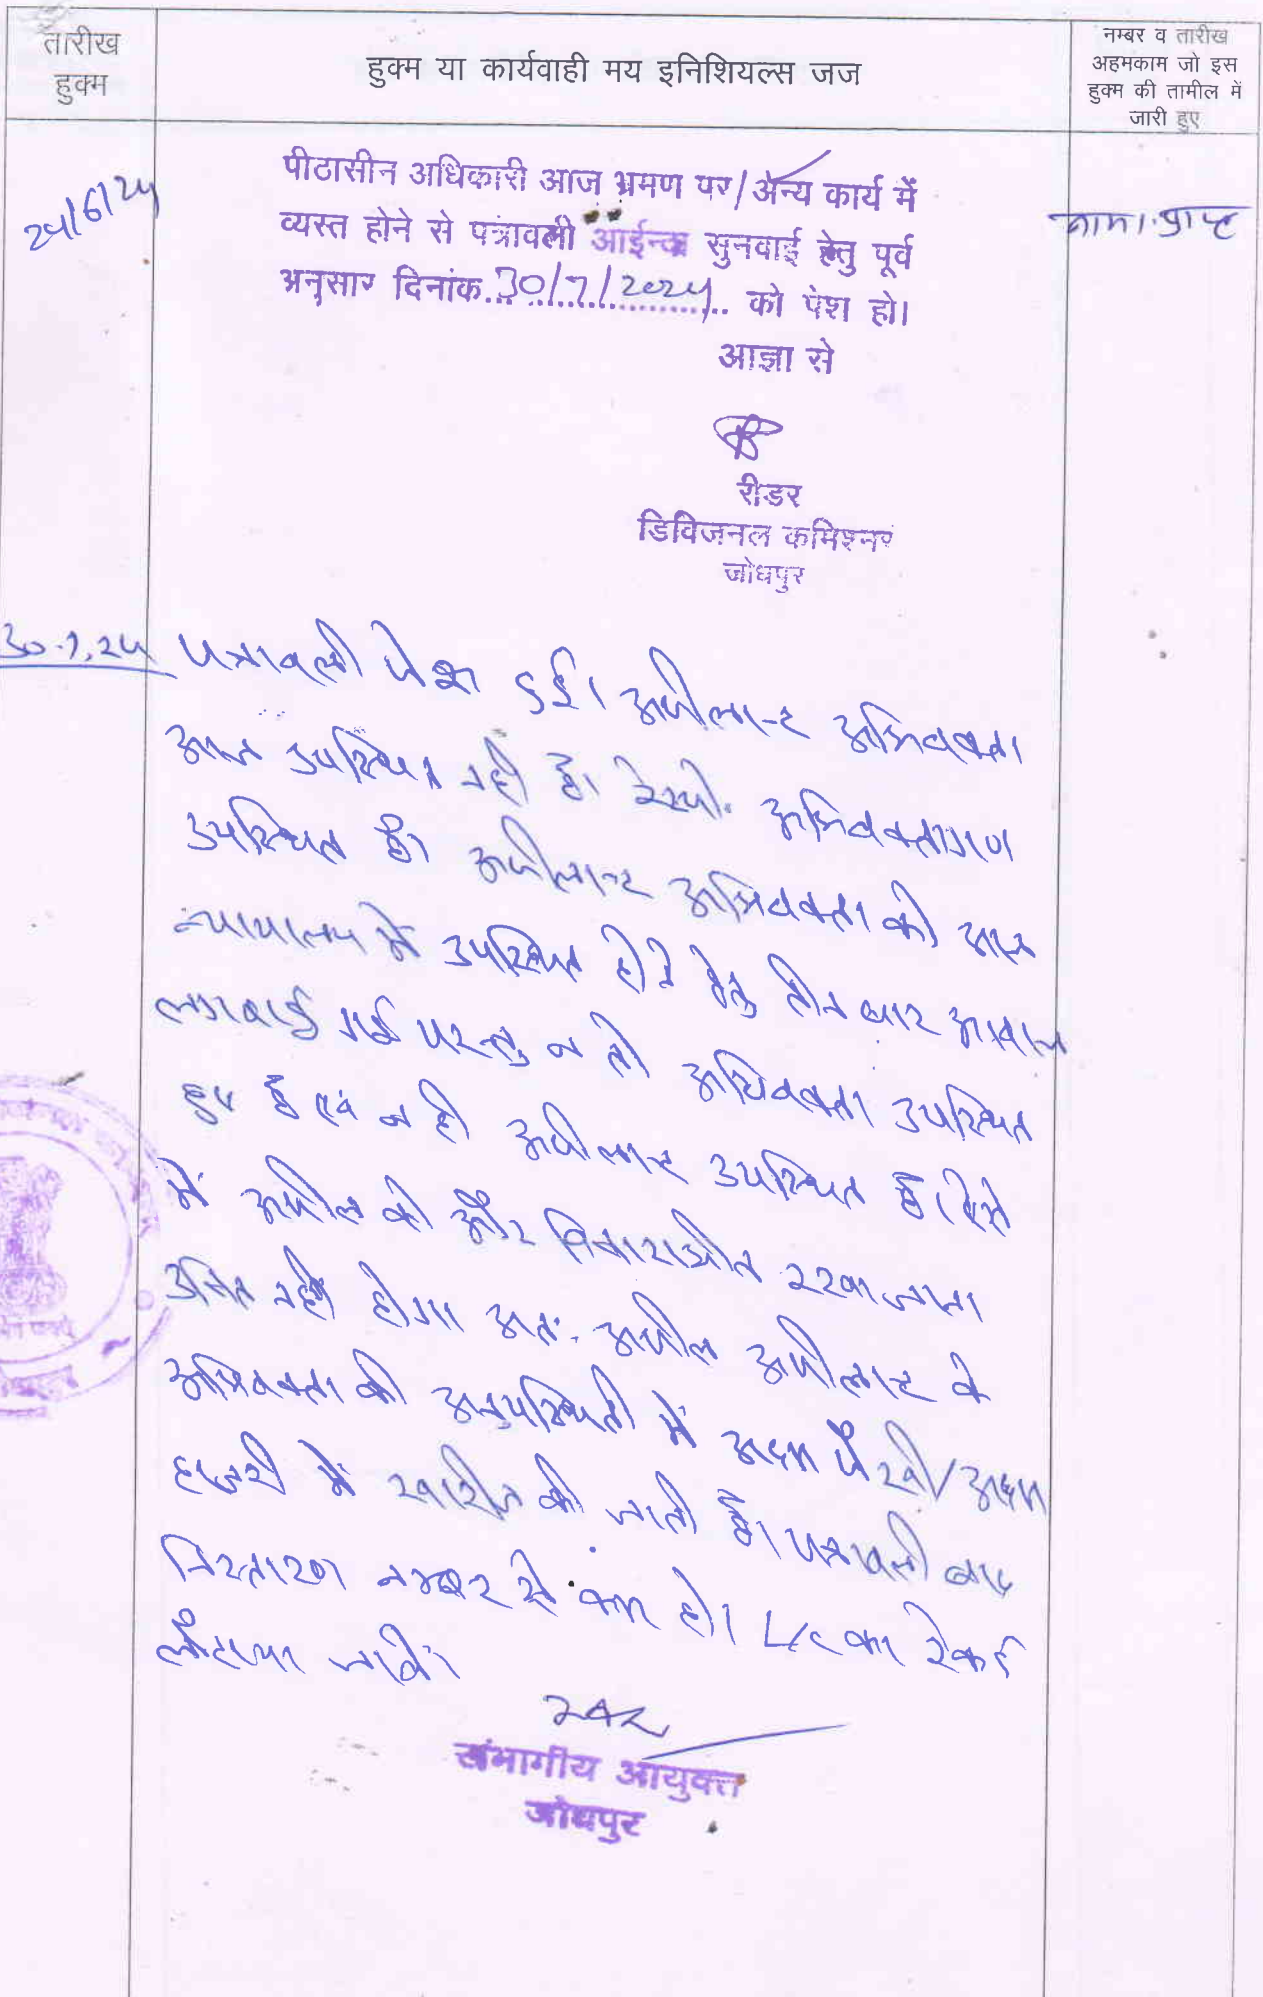 तारीख
हुक्म
हुक्म या कार्यवाही मय इनिशियल्स जज
नम्बर व तारीख
अहमकाम जो इस
हुक्म की तामील में
जारी हुए
24/6/24
पीठासीन अधिकारी आज भ्रमण पर/अन्य कार्य में
व्यस्त होने से पत्रावली आईन्दा सुनवाई हेतु पूर्व
अनुसार दिनांक...30/7/2024... को पेश हो।
आज्ञा से
रीडर
डिविजनल कमिश्नर
जोधपुर
30.7.24
पत्रावली पेश हुई। अपीलान्ट अभिवक्ता
आज उपस्थित नहीं है। रेस्पो. अभिवक्तागण
उपस्थित है। अपीलान्ट अभिवक्ता को आज
न्यायालय में उपस्थित होने हेतु तीन बार आवाज
लगवाई गई परन्तु न तो अधिवक्ता उपस्थित
हुए है एवं न ही अपीलान्ट उपस्थित है। ऐसे
में अपील को और विचाराधीन रखा जाना
उचित नहीं होगा अतः अपील अपीलान्ट के
अभिवक्ता की अनुपस्थिती में अदम पैरवी/अदम
हाजरी में खारीज की जाती है। पत्रावली बाद
निस्तारण नम्बर से कम हो। L/c का रेकर्ड
लौटाया जावे।
संभागीय आयुक्त
जोधपुर